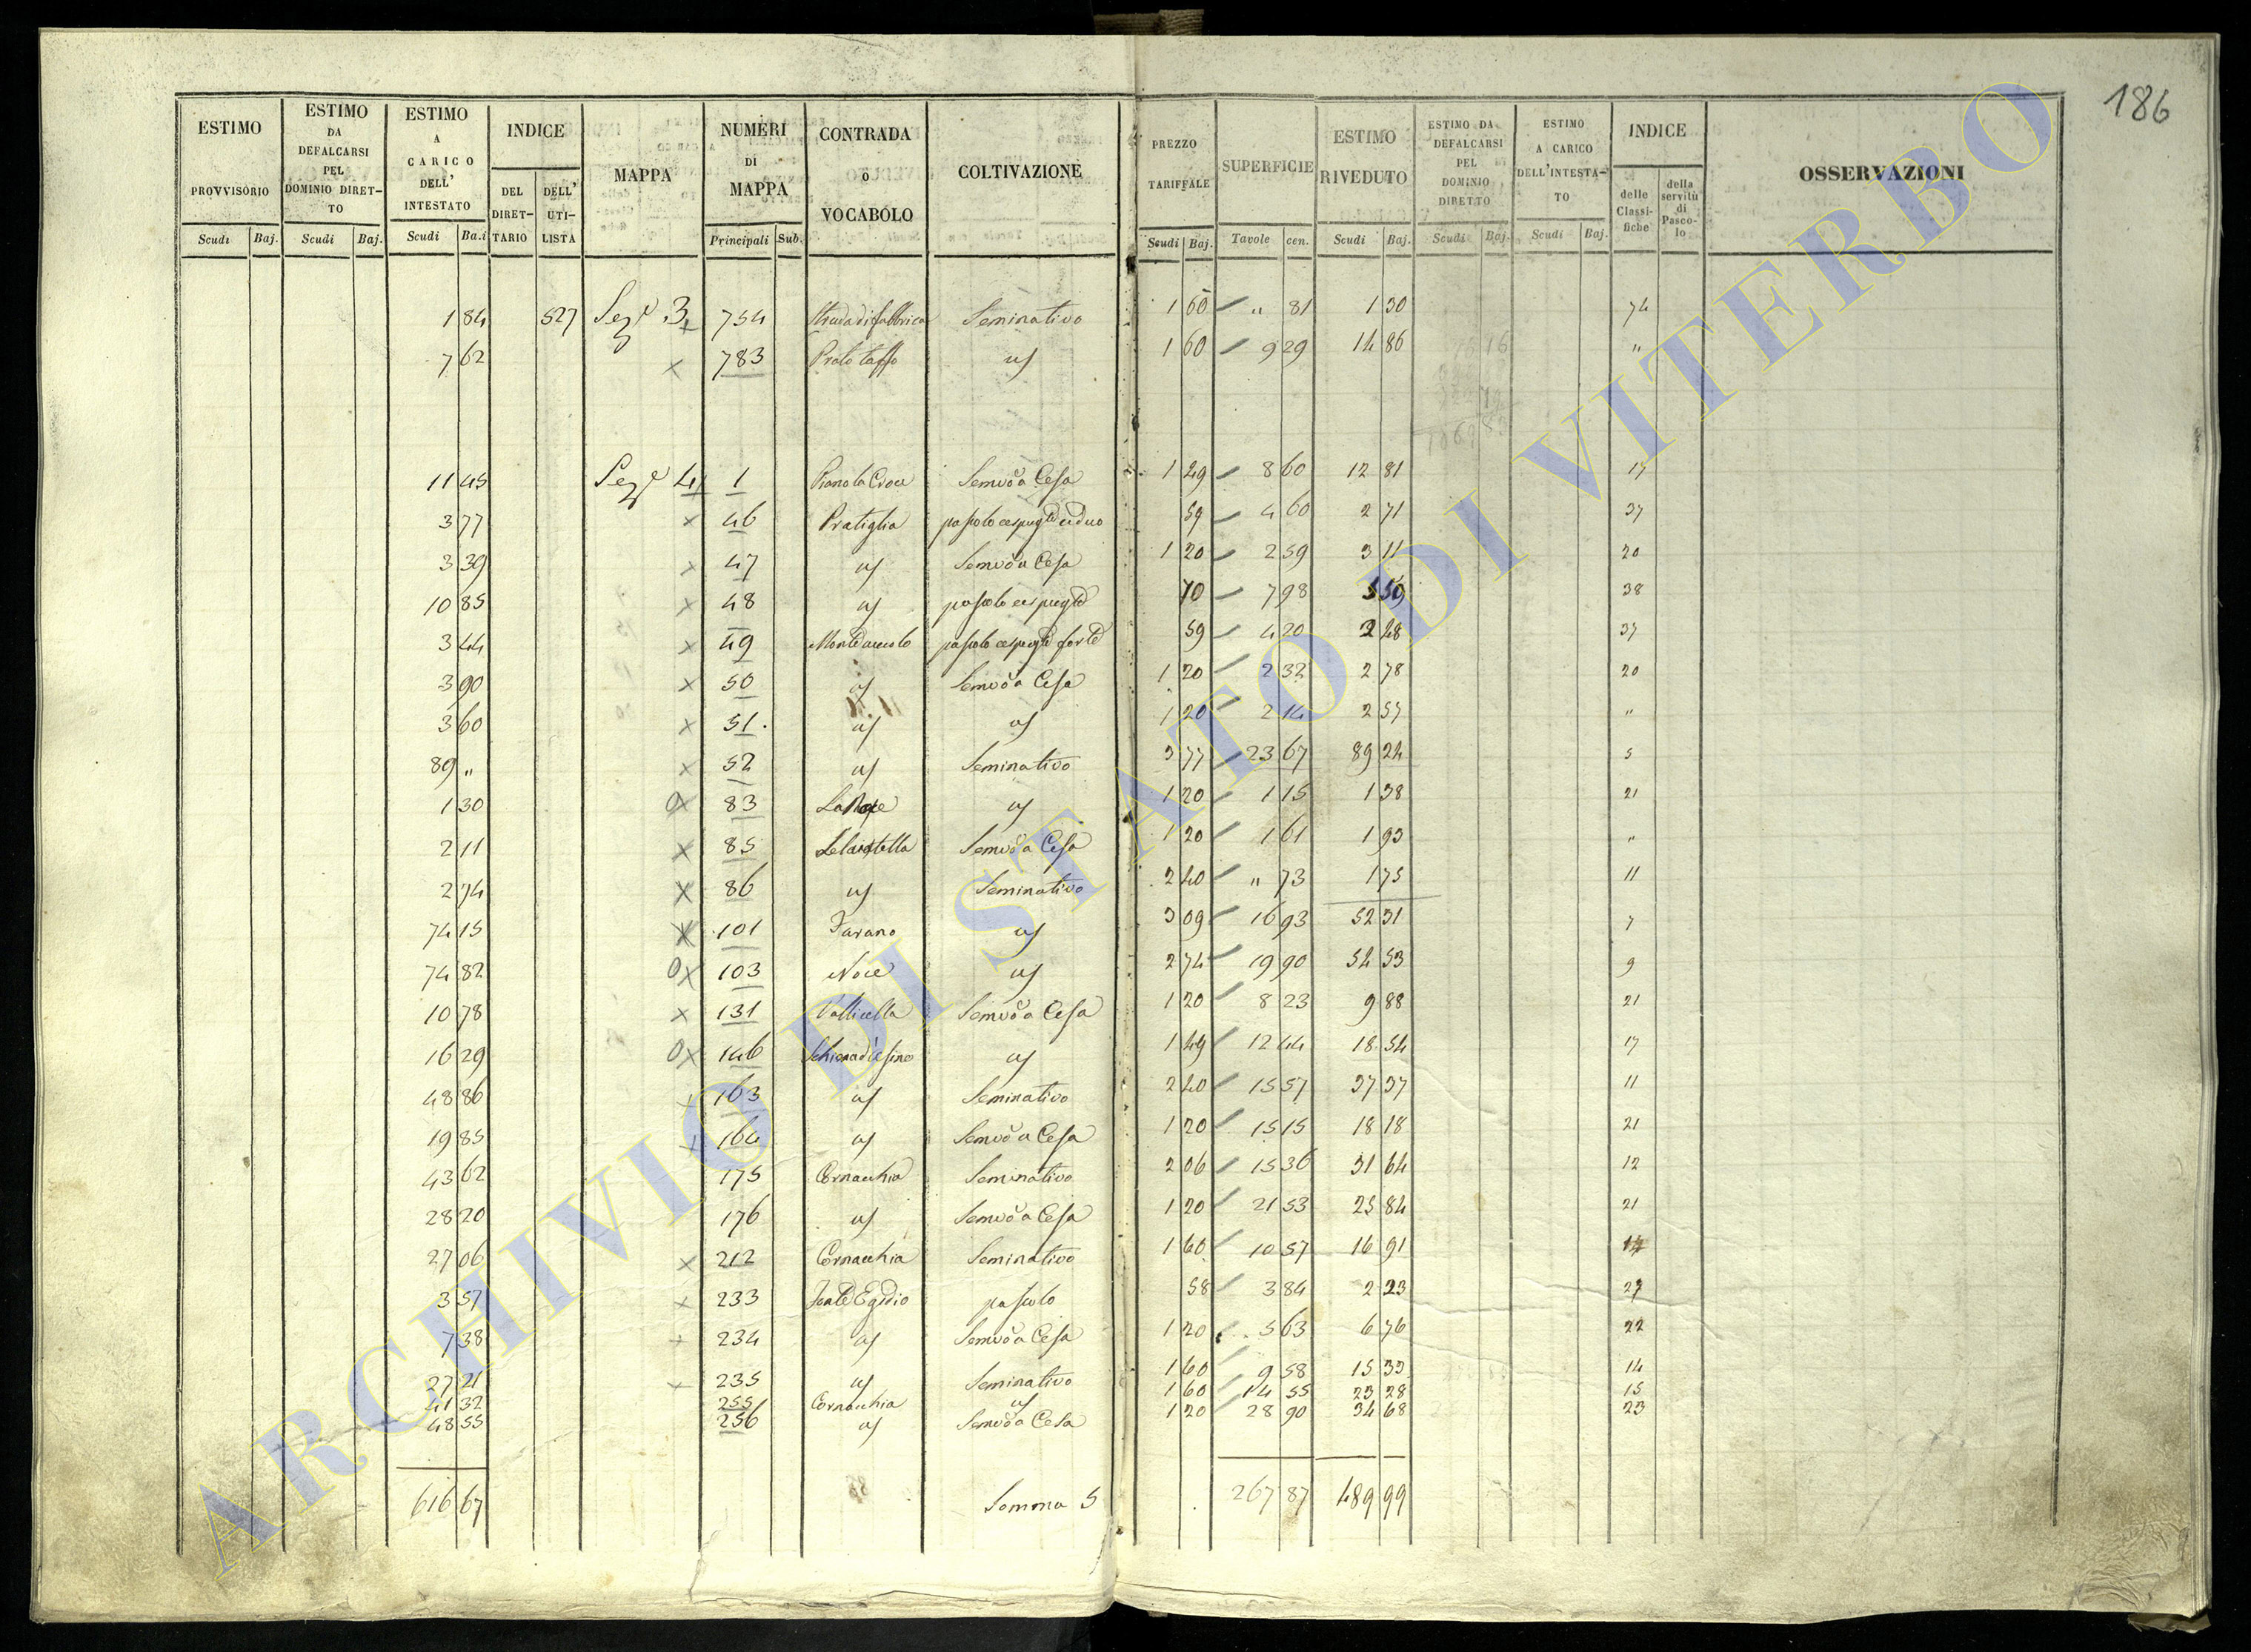 186
ESTIMO PROVVISORIO | ESTIMO DA DEFALCARSI PEL DOMINIO DIRETTO | ESTIMO A CARICO DELL' INTESTATO | INDICE DEL DIRETTARIO | DELL' UTILISTA | MAPPA | NUMERI DI MAPPA | CONTRADA o VOCABOLO | COLTIVAZIONE | PREZZO TARIFFALE | SUPERFICIE | ESTIMO RIVEDUTO | ESTIMO DA DEFALCARSI PEL DOMINIO DIRETTO | ESTIMO A CARICO DELL'INTESTATO | INDICE delle Classifiche | della servitù di Pascolo | OSSERVAZIONI
Scudi | Baj. | Scudi | Baj. | Scudi | Ba.i | Principali | Sub. | Scudi | Baj. | Tavole | cen. | Scudi | Baj. | Scudi | Baj. | Scudi | Baj.
1 84 | 527 | Seze 3 x | 754 | Strada di fabbrica | Seminativo | 1 60 | " 81 | 1 30 | 74
7 62 | x | 783 | Prato | us | 1 60 | 9 29 | 14 86 | "
11 45 | Sez e 4 | 1 | Piano la Croce | Semvo a Cesa | 1 49 | 8 60 | 12 81 | 17
3 77 | x | 46 | Pratiglia | pascolo cespugto ceduo | 59 | 4 60 | 2 71 | 37
3 39 | x | 47 | us | Semvo a Cesa | 1 20 | 2 59 | 3 11 | 20
10 85 | x | 48 | us | pascolo cespugto | 70 | 7 98 | 5 59 | 38
3 44 | x | 49 | Monte | pascolo cespugto forte | 59 | 4 20 | 2 48 | 37
3 90 | x | 50 | us | Semvo a Cesa | 1 20 | 2 32 | 2 78 | 20
3 60 | x | 51. | us | us | 1 20 | 2 14 | 2 57 | "
89 " | x | 52 | us | Seminativo | 3 77 | 23 67 | 89 24 | 5
1 30 | 0x | 83 | us | 1 20 | 1 15 | 1 38 | 21
2 11 | x | 85 | Semvo a Cesa | 1 20 | 1 61 | 1 93 | "
2 74 | x | 86 | us | Seminativo | 2 40 | " 73 | 1 75 | 11
74 15 | x | 101 | Farano | us | 3 09 | 16 93 | 52 31 | 7
74 82 | 0x | 103 | Noce | us | 2 74 | 19 90 | 54 53 | 9
10 78 | x | 131 | Vallicella | Semvo a Cesa | 1 20 | 8 23 | 9 88 | 21
16 29 | 0x | 146 | us | 1 49 | 12 44 | 18 54 | 17
48 86 | x | 163 | us | Seminativo | 2 40 | 15 57 | 37 37 | 11
19 85 | x | 164 | us | Semvo a Cesa | 1 20 | 15 15 | 18 18 | 21
43 62 | 175 | Cornacchia | Seminativo | 2 06 | 15 36 | 31 64 | 12
28 20 | 176 | us | Semvo a Cesa | 1 20 | 21 53 | 25 84 | 21
27 06 | x | 212 | Cornacchia | Seminativo | 1 60 | 10 57 | 16 91 | 14
3 57 | x | 233 | Fonte Egidio | pascolo | 58 | 3 84 | 2 23 | 27
7 38 | x | 234 | us | Semvo a Cesa | 1 20 | 5 63 | 6 76 | 22
27 21 | x | 235 | us | Seminativo | 1 60 | 9 58 | 15 33 | 14
41 32 | 255 | Cornacchia | us | 1 60 | 14 55 | 23 28 | 15
48 55 | 256 | us | Semvo a Cesa | 1 20 | 28 90 | 34 68 | 23
616 67 | Somma S | 267 87 | 489 99
ARCHIVIO DI STATO DI VITERBO